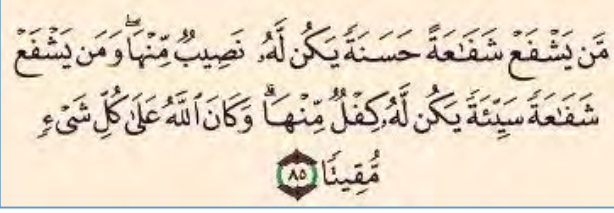 مَّن يَشْفَعْ شَفَٰعَةً حَسَنَةً يَكُن لَّهُۥ نَصِيبٌ مِّنْهَا ۖ وَمَن يَشْفَعْ
شَفَٰعَةً سَيِّئَةً يَكُن لَّهُۥ كِفْلٌ مِّنْهَا ۗ وَكَانَ ٱللَّهُ عَلَىٰ كُلِّ شَىْءٍ
مُّقِيتًا ٨٥